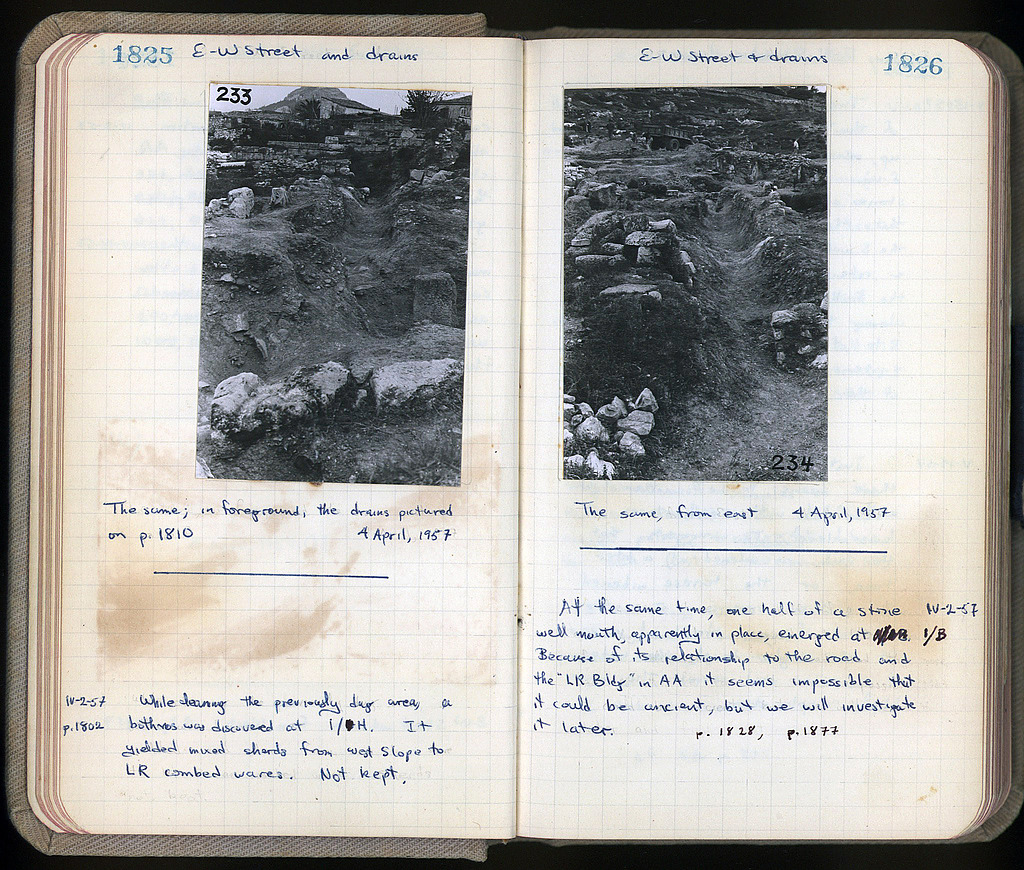 1825 E-W Street and drains
233
The same; in foreground, the drains pictured
on p. 1810 4 April, 1957
IV-2-57 While cleaning the previously dug area, a
p. 1802 bothros was discovered at H. It
yielded mixed sherds from west slope to
LR combed wares. Not kept.
E-W Street & drains 1826
234
The same, from east 4 April, 1957
At the same time, one half of a stone IV-2-57
well mouth, apparently in place, emerged at 1/B
Because of its relationship to the road and
the "LR Bldg" in AA it seems impossible that
it could be ancient, but we will investigate
it later. p. 1828, p. 1877